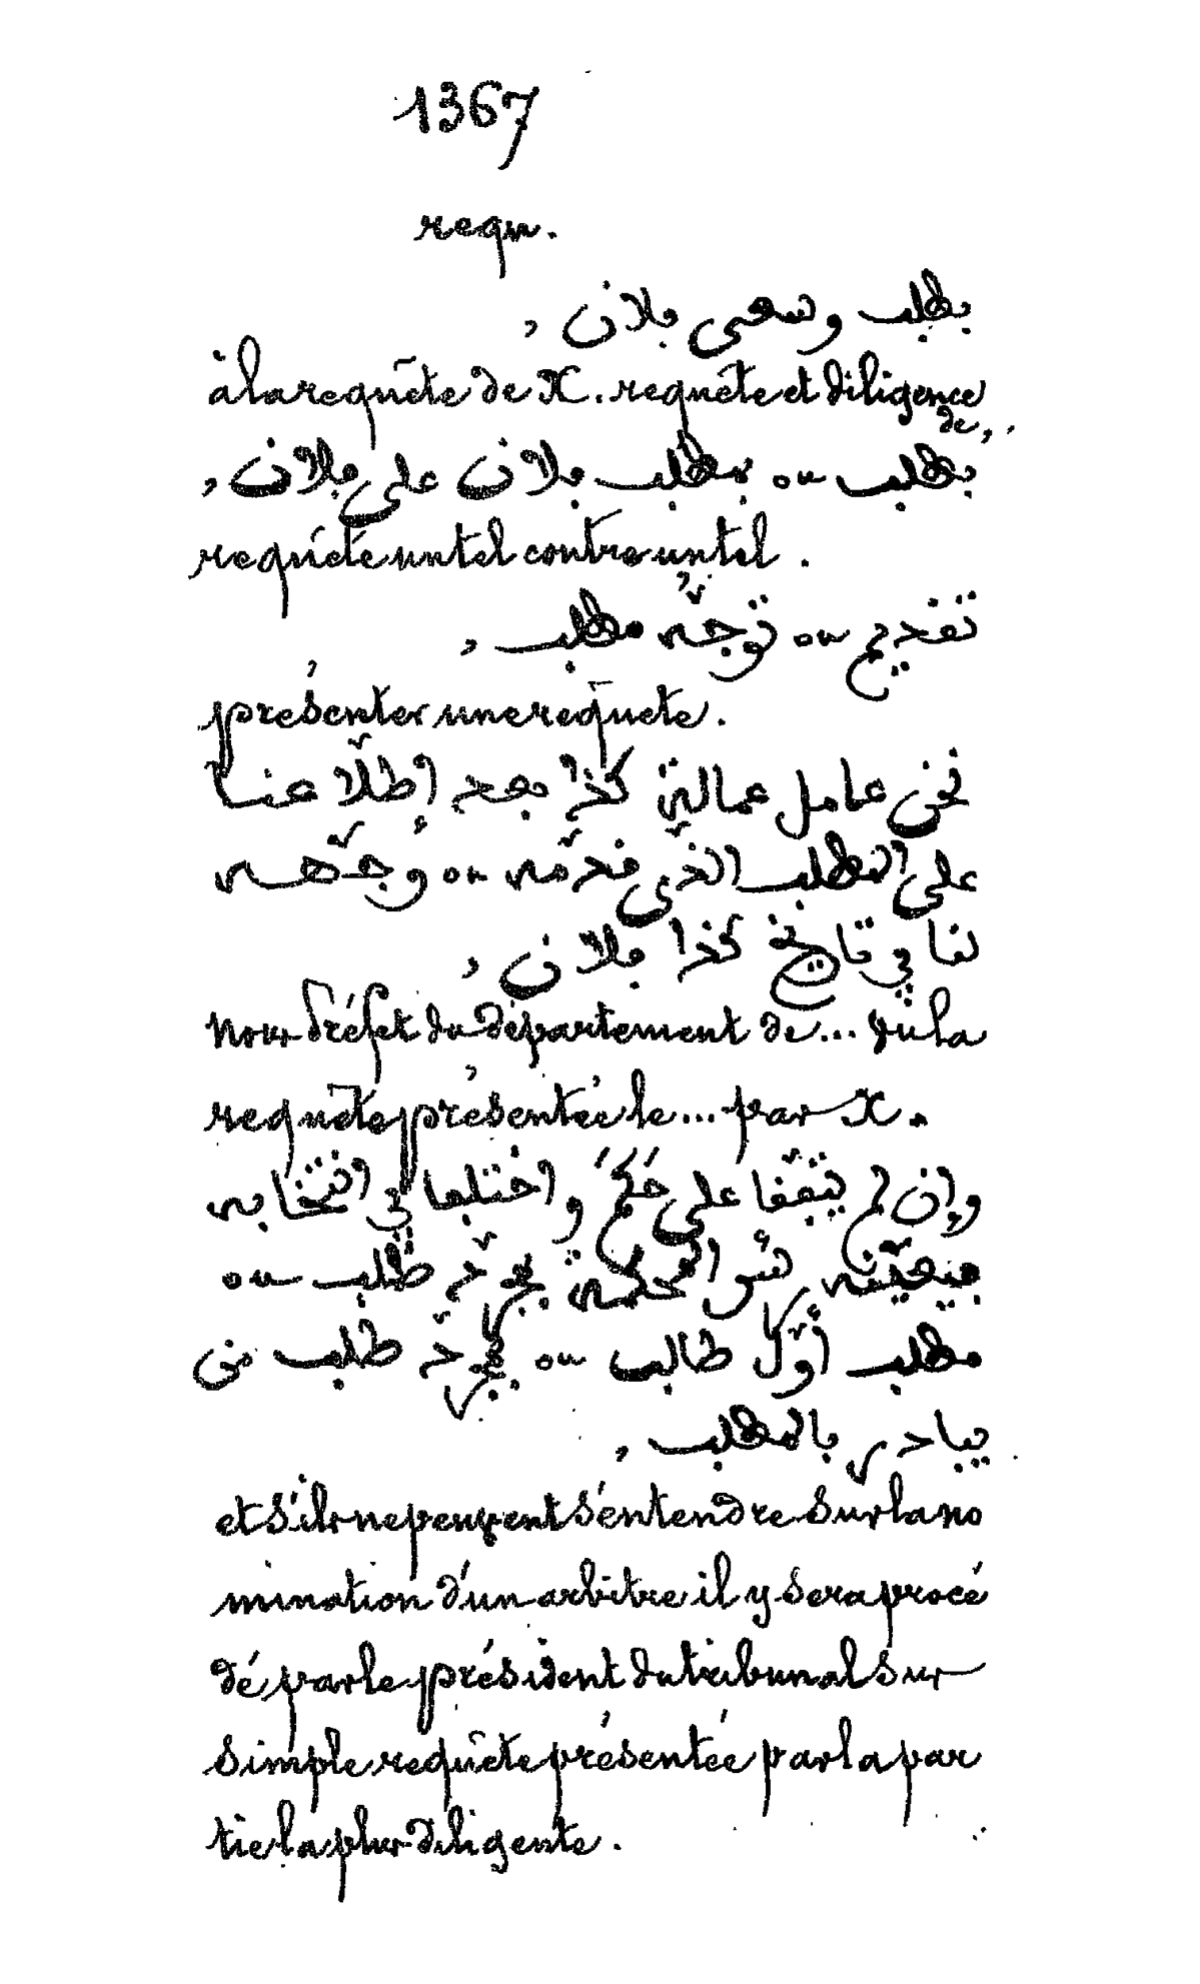 1367
requ.
بطلب وسعى فلان ,
à la requête de X. requête et diligence
de,
بطلب ou بمطلب فلان على فلان ,
requête un tel contre un tel .
تقديم ou توجّه مطلب ,
présenter une requête .
نحن عامل عمالة كذا بعد إطلّاعنا
على المطلب الذي قدّمه ou وجّهه
لنا في تاريخ كذا فلان ,
Nous Préfet du département de ... vu la
requête présentée le ... par X .
وإن لم يتّفقا على حَكَمٍ واختلفا في انتخابه
فيعيّنه رئيس المحكمة بمجرّد طلب ou
مطلب أوّل طالب ou بمجرّد طلب من
يبادر بالمطلب ,
et s'ils ne peuvent s'entendre sur la no
mination d'un arbitre il y sera procé
dé par le président du tribunal sur
simple requête présentée par la par
tie la plus diligente .